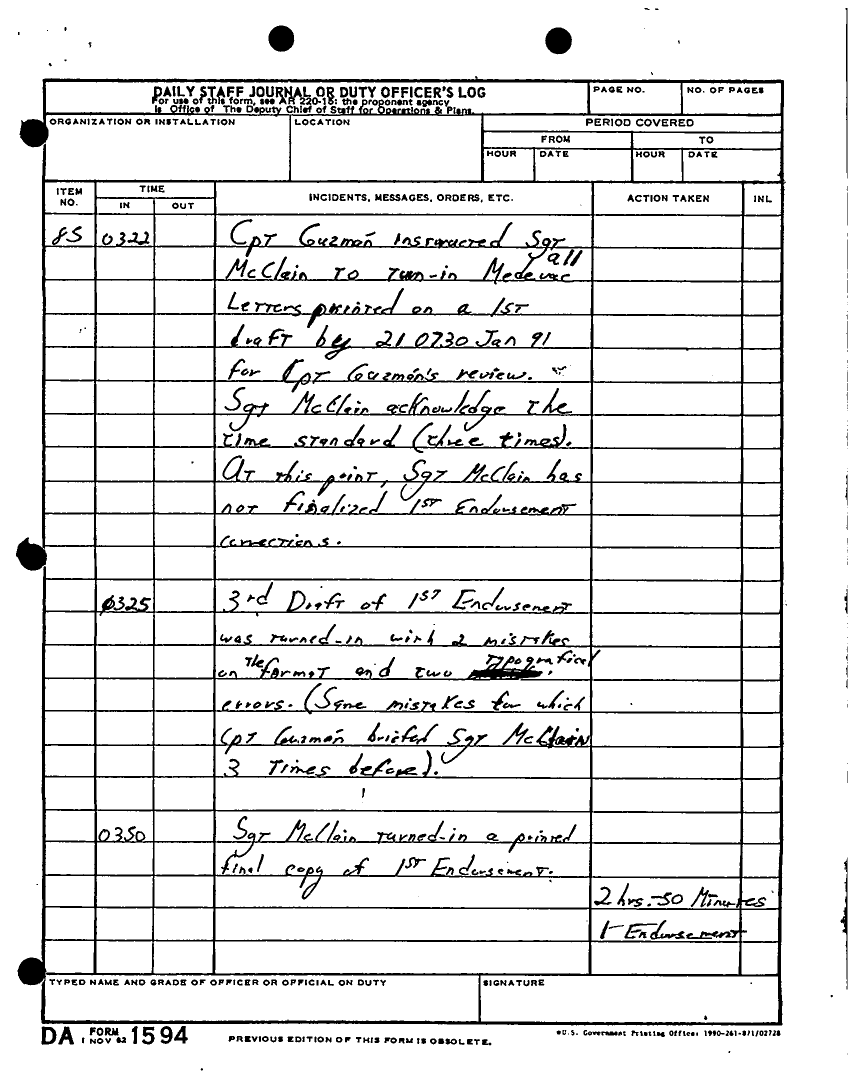 DAILY STAFF JOURNAL OR DUTY OFFICER'S LOG
For use of this form, see AR 220-15; the proponent agency
is Office of The Deputy Chief of Staff for Operations & Plans.
PAGE NO.
NO. OF PAGES
ORGANIZATION OR INSTALLATION
LOCATION
PERIOD COVERED
FROM
TO
HOUR
DATE
HOUR
DATE
ITEM NO.
TIME
IN
OUT
INCIDENTS, MESSAGES, ORDERS, ETC.
ACTION TAKEN
INL
85 0322 Cpt Guzmán instructed Sgt
McClain to turn-in all Medevac
Letters printed on a 1ST
draft by 21 0730 Jan 91
for Cpt Guzmán's review.
Sgt McClain acknowledge the
time standard (three times).
At this point, Sgt McClain has
not finalized 1ST Endorsement
corrections.
0325 3rd Draft of 1ST Endorsement
was turned-in with 2 mistakes
on the format and two typografical
errors. (Same mistakes for which
Cpt Guzmán briefed Sgt McClain
3 times before).
0350 Sgt McClain turned-in a printed
final copy of 1ST Endorsement.
2 hrs.-50 Minutes
1 - Endorsement
TYPED NAME AND GRADE OF OFFICER OR OFFICIAL ON DUTY
SIGNATURE
DA FORM 1 NOV 62 1594
PREVIOUS EDITION OF THIS FORM IS OBSOLETE.
*U.S. Government Printing Office: 1990-261-871/02728